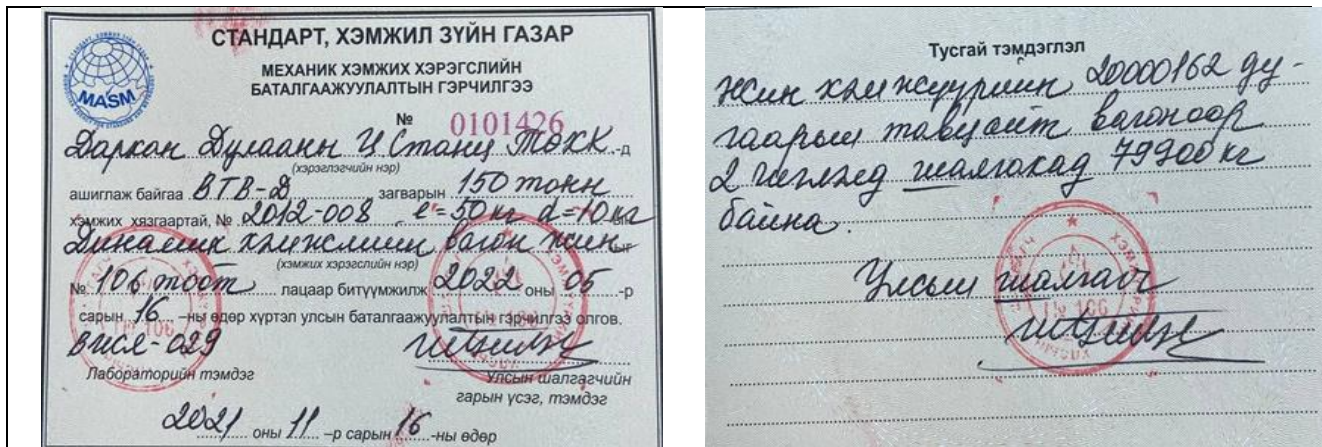 СТАНДАРТ, ХЭМЖИЛ ЗҮЙН ГАЗАР
МЕХАНИК ХЭМЖИХ ХЭРЭГСЛИЙН
БАТАЛГААЖУУЛАЛТЫН ГЭРЧИЛГЭЭ
MASM
№ 0101426
Дархан Дулааны Ц Станц ТӨХК -д
(хэрэглэгчийн нэр)
ашиглаж байгаа ВТВ-Д загварын 150 тонн
хэмжих хязгаартай, № 2012-008 e=50 кг d=10 кг
Динамик хэмжлийн вагон жин
(хэмжих хэрэгслийн нэр)
№ 106 тоот лацаар битүүмжилж 2022 оны 05 -р
сарын 16 -ны өдөр хүртэл улсын баталгаажуулалтын гэрчилгээ олгов.
Лабораторийн тэмдэг
Улсын шалгагчийн
гарын үсэг, тэмдэг
2021 оны 11 -р сарын 16 -ны өдөр
Тусгай тэмдэглэл
Жин хэмжүүрийн 20000162 ду-
гаарын тавцант вагоноор
2 чиглэлд шалгахад 79900 кг
байна.
Улсын шалгагч